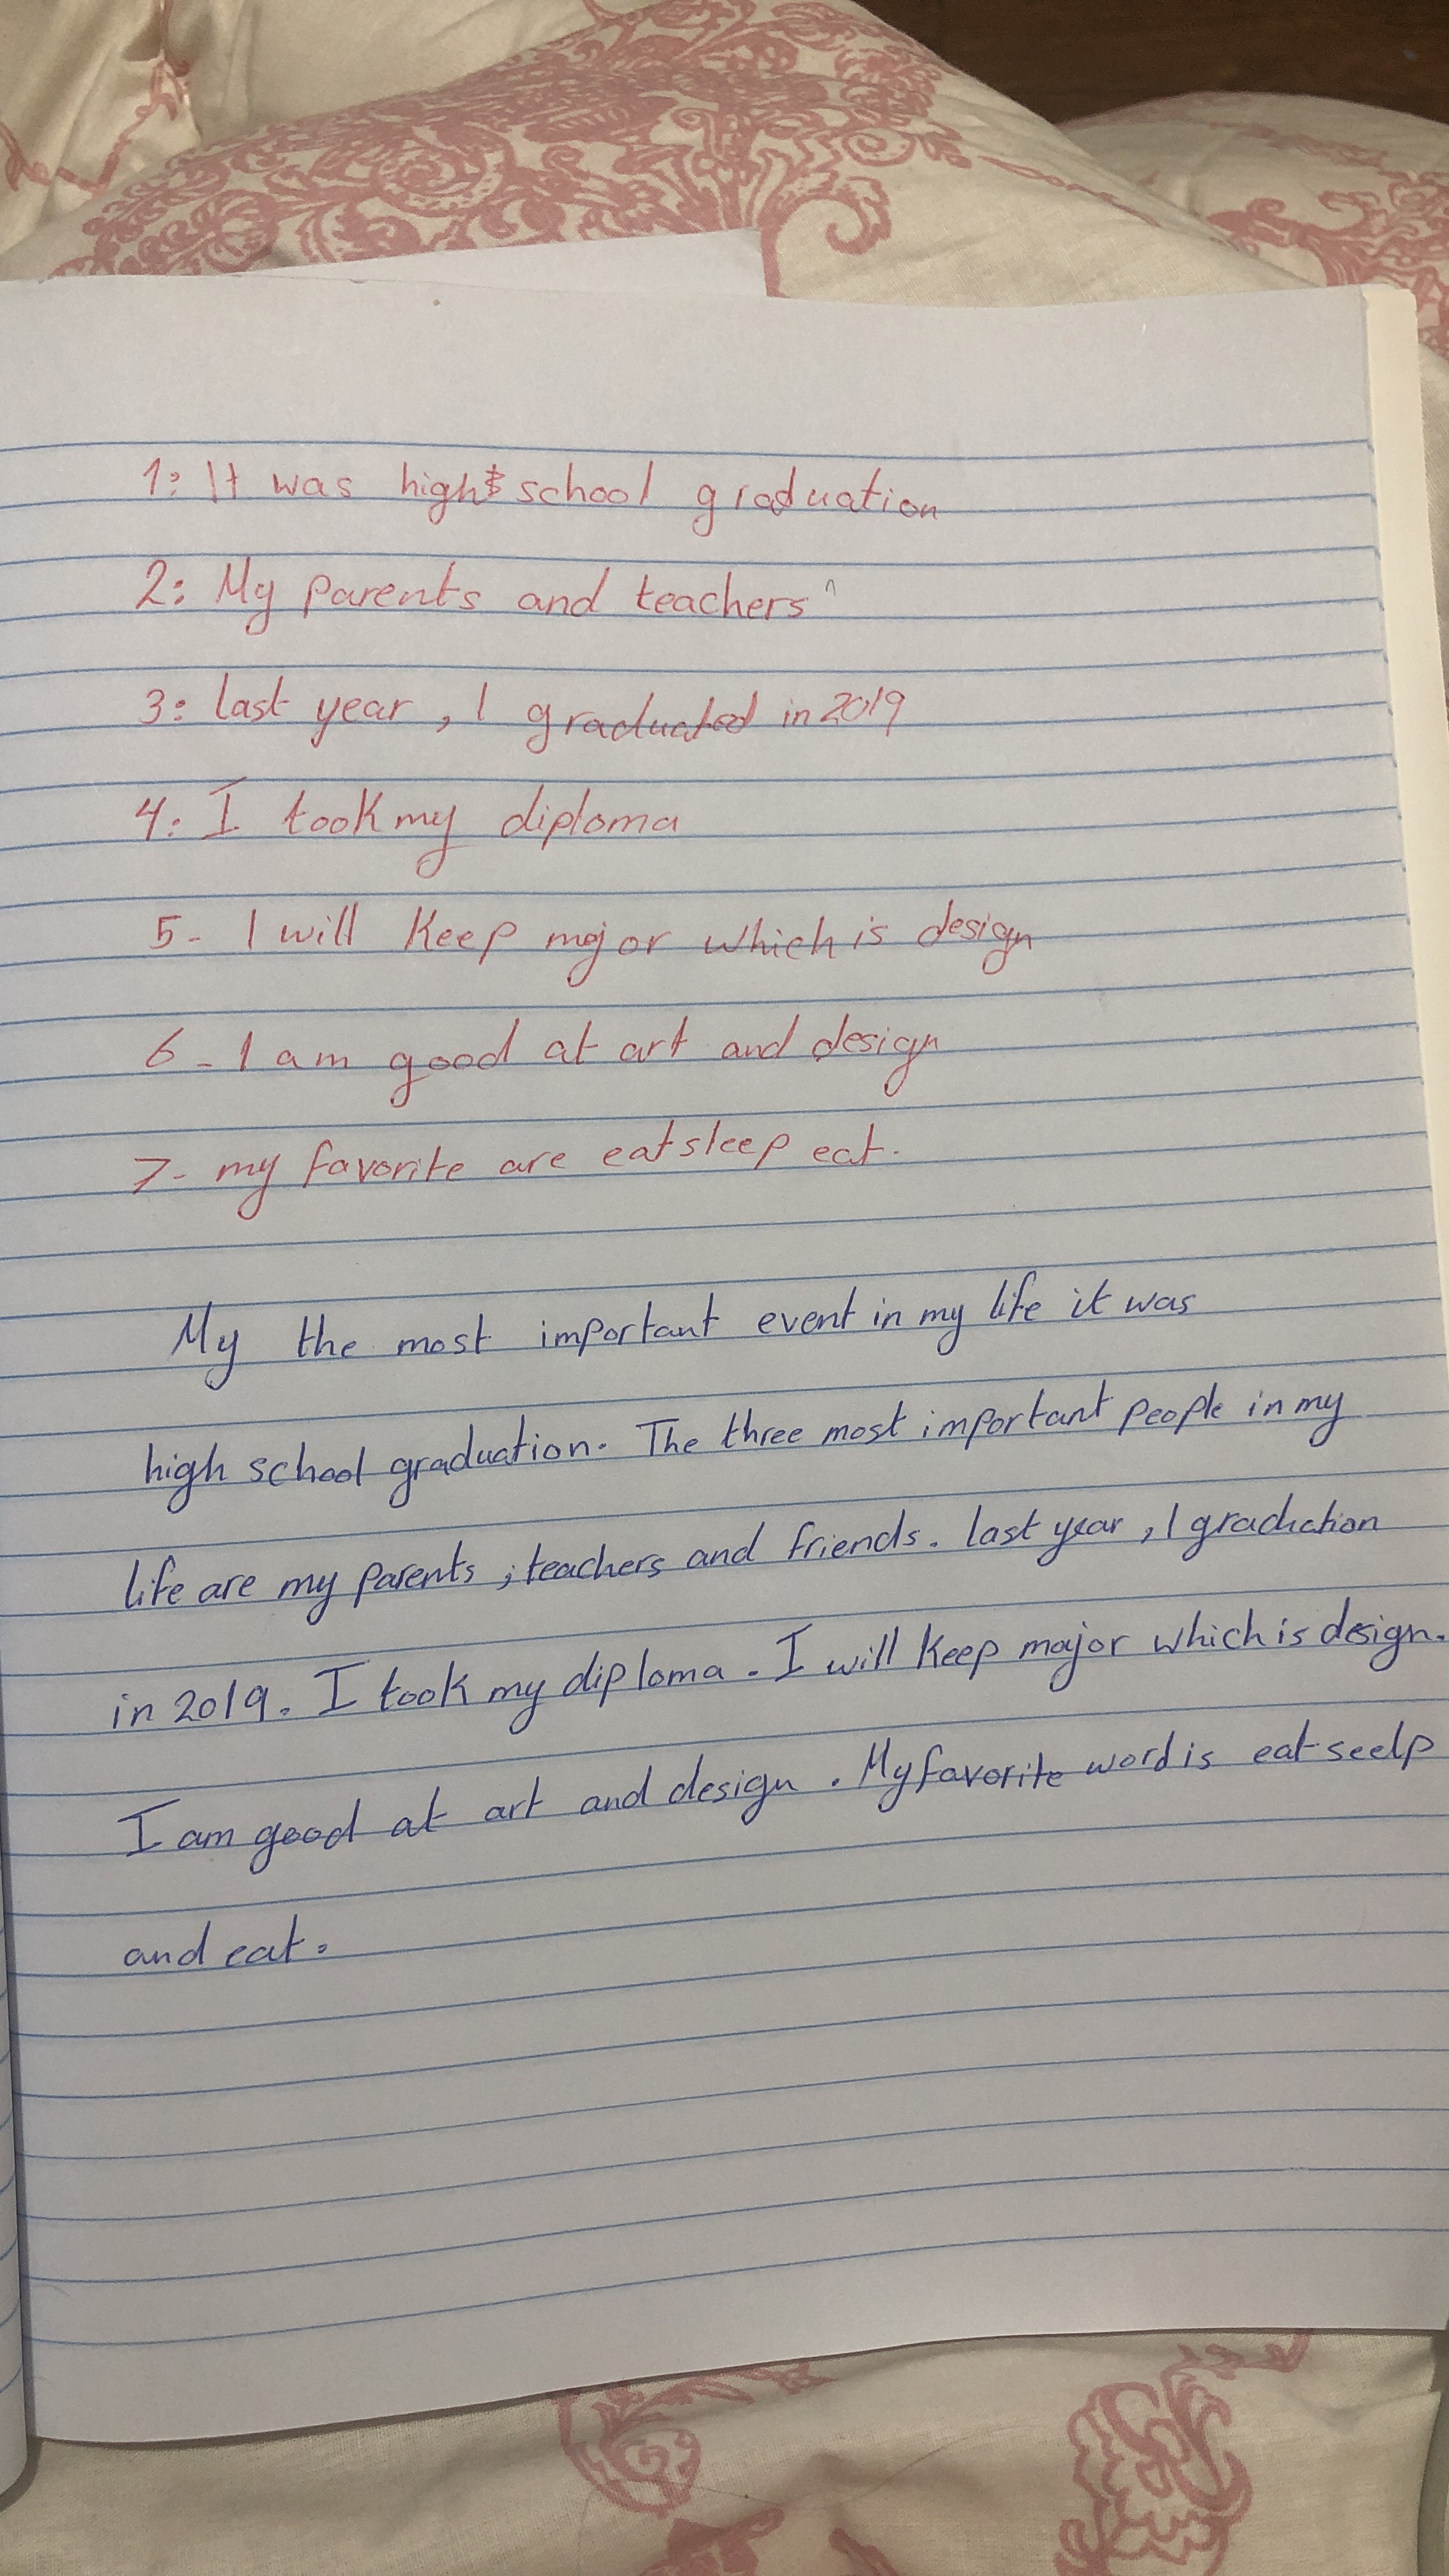 1: It was high school graduation
2: My parents and teachers
3: last year, I graduated in 2019
4: I took my diploma
5- I will Keep major which is design
6- I am good at art and design
7- my favorite are eat sleep eat.
My the most important event in my life it was
high school graduation. The three most important people in my
life are my parents, teachers and friends. last year, I graduction
in 2019. I took my diploma. I will Keep major which is design.
I am good at art and design. My favorite word is eat seelp
and eat.